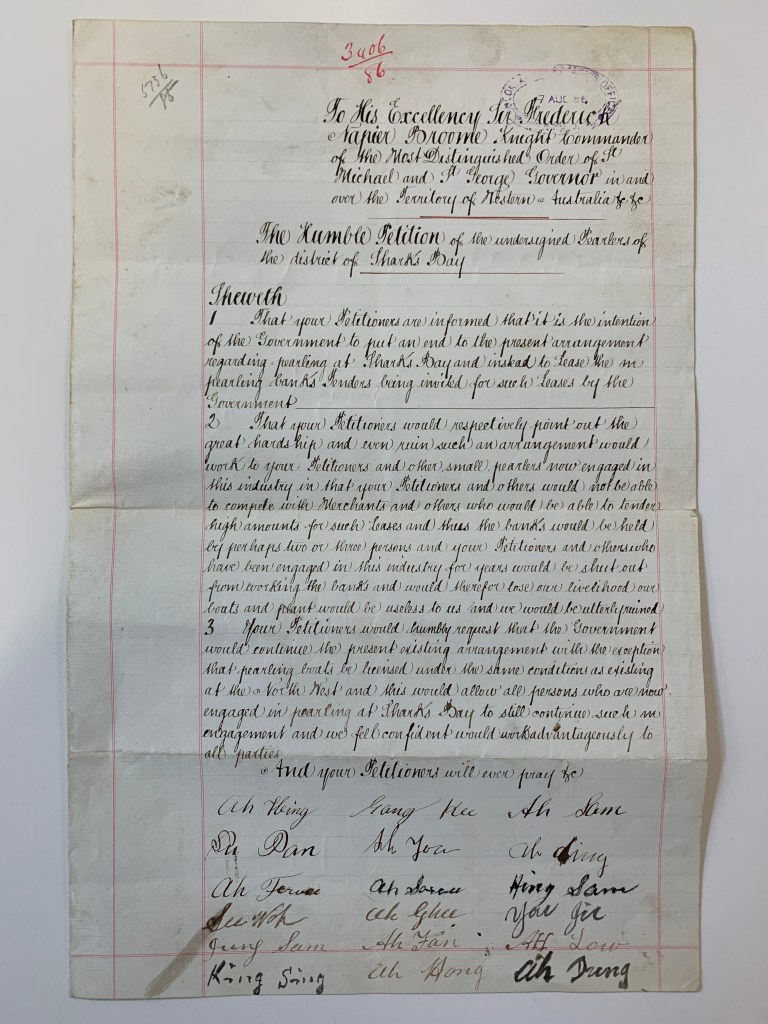 3406
86
7 AUG 86
To His Excellency Sir Frederick
Napier Broome Knight Commander
of the Most Distinguished Order of St
Michael and St George, Governor in and
over the Territory of Western Australia &c &c
The Humble Petition of the undersigned Pearlers of
the district of Sharks Bay
Sheweth
1 That your Petitioners are informed that it is the intention
of the Government to put an end to the present arrangement
regarding pearling at Sharks Bay and instead to Lease the
pearling banks Tenders being invited for such Leases by the
Government
2 That your Petitioners would respectively point out the
great hardship and even ruin such an arrangement would
work to your Petitioners and other small pearlers now engaged in
this industry in that your Petitioners and others would not be able
to compete with Merchants and others who would be able to tender
high amounts for such Leases and thus the banks would be held
by perhaps two or three persons and your Petitioners and others who
have been engaged in this industry for years would be shut out
from working the banks and would therefor lose our livelihood our
boats and plant would be useless to us and we would be utterly ruined
3 Your Petitioners would humbly request that the Government
would continue the present existing arrangement with the exception
that pearling boats be licensed under the same conditions as existing
at the North West and this would allow all persons who are now
engaged in pearling at Sharks Bay to still continue such
engagement and we feel confident would work advantageously to
all parties
And your Petitioners will ever pray &c
Ah Hing Gong Kee Ah Sam
Dan Ah You Ah
Ah Ah Hing Sam
See Woh Ah Ghee You
Jung Sam Ah Fan Ah Low
King Sing Ah Hong Ah Dung